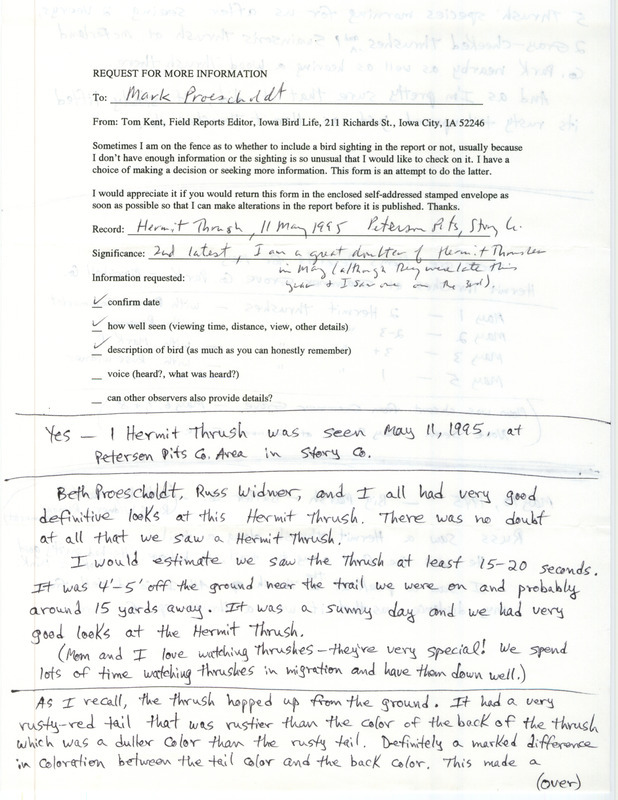 REQUEST FOR MORE INFORMATION
To: Mark Proescholdt
From: Tom Kent, Field Reports Editor, Iowa Bird Life, 211 Richards St., Iowa City, IA 52246
Sometimes I am on the fence as to whether to include a bird sighting in the report or not, usually because
I don't have enough information or the sighting is so unusual that I would like to check on it. I have a
choice of making a decision or seeking more information. This form is an attempt to do the latter.
I would appreciate it if you would return this form in the enclosed self-addressed stamped envelope as
soon as possible so that I can make alterations in the report before it is published. Thanks.
Record: Hermit Thrush, 11 May 1995 Peterson Pits, Story Co.
Significance: 2nd latest, I am a great doubter of Hermit Thrushes
in May (although they were late this
year & I saw one on the 3rd).
Information requested:
✓ confirm date
✓ how well seen (viewing time, distance, view, other details)
✓ description of bird (as much as you can honestly remember)
__ voice (heard?, what was heard?)
__ can other observers also provide details?
Yes – 1 Hermit Thrush was seen May 11, 1995, at
Peterson Pits Co. Area in Story Co.
Beth Proescholdt, Russ Widner, and I all had very good
definitive looks at this Hermit Thrush. There was no doubt
at all that we saw a Hermit Thrush.
I would estimate we saw the Thrush at least 15-20 seconds.
It was 4'-5' off the ground near the trail we were on and probably
around 15 yards away. It was a sunny day and we had very
good looks at the Hermit Thrush.
(Mom and I love watching thrushes – they're very special! We spend
lots of time watching thrushes in migration and have them down well.)
As I recall, the thrush hopped up from the ground. It had a very
rusty-red tail that was rustier than the color of the back of the thrush
which was a duller color than the rusty tail. Definitely a marked difference
in coloration between the tail color and the back color. This made a
(over)